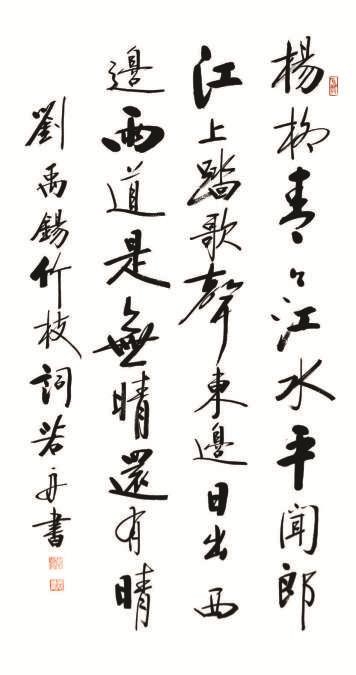 楊柳青々江水平聞郎
江上踏歌聲東邊日出西
邊雨道是無晴還有晴
劉禹錫竹枝詞若舟書